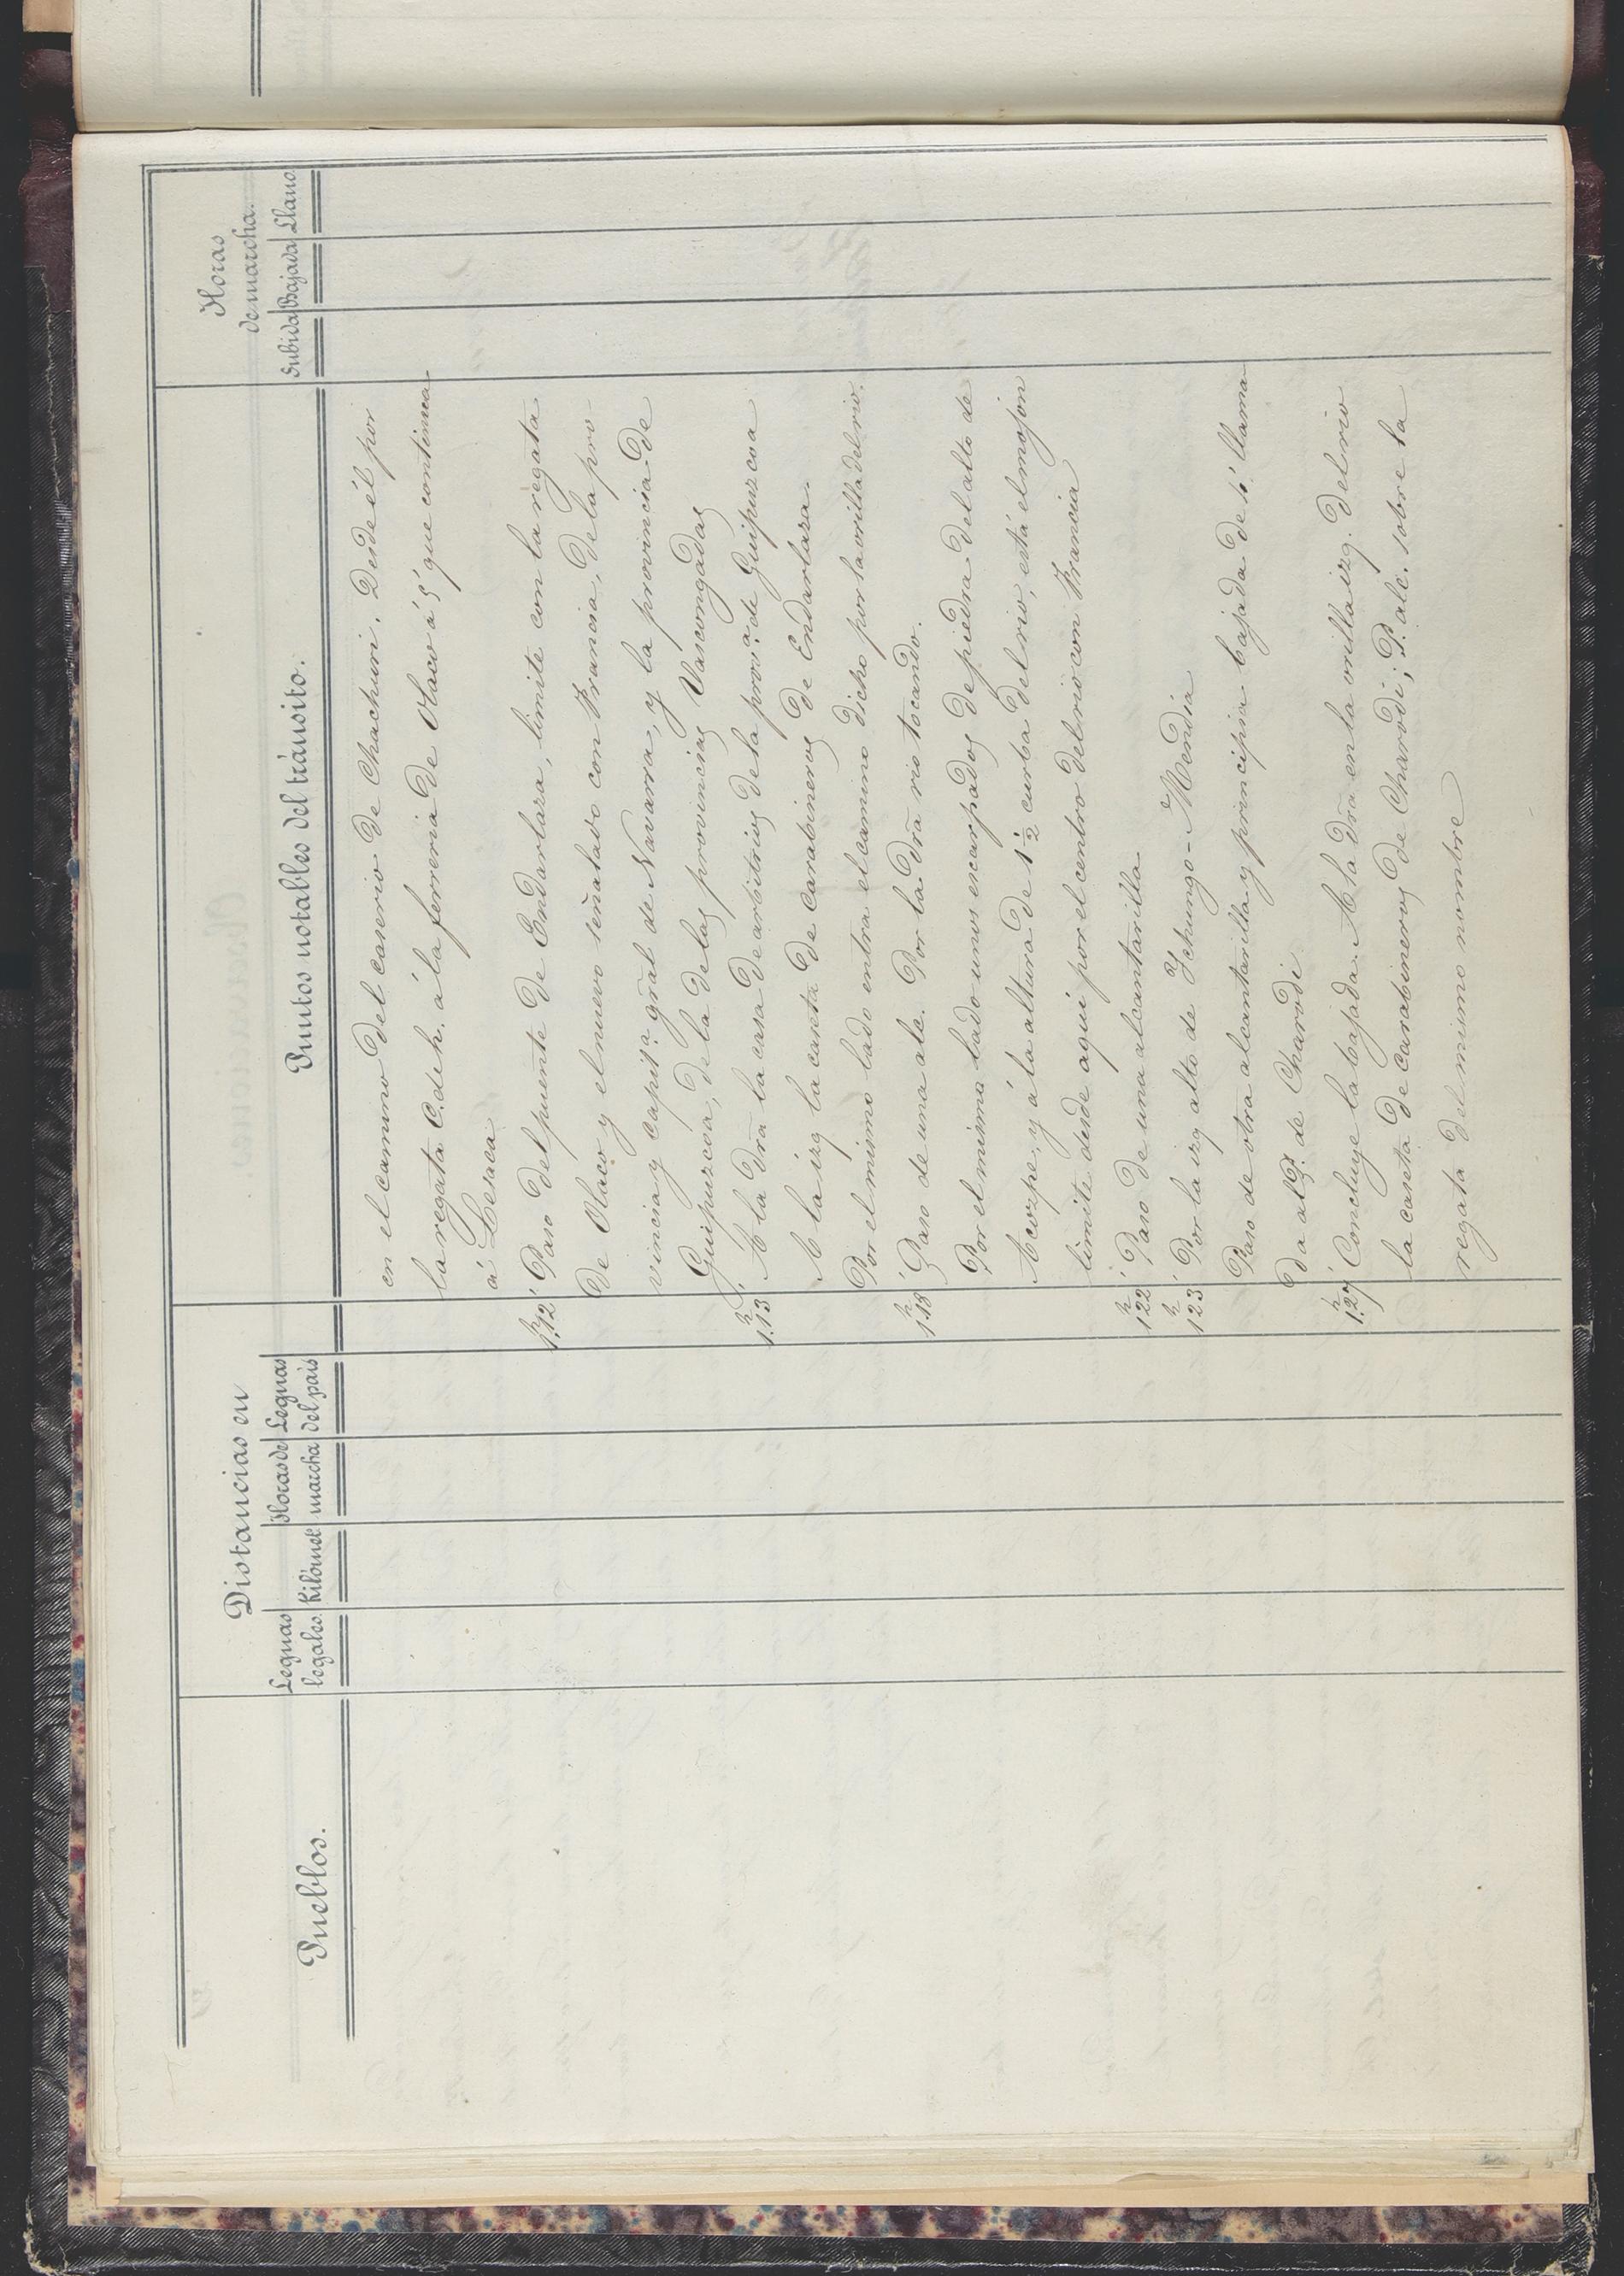 Pueblos.
Distancias en
Leguas legales.
Kilómet.
Horas de marcha
Leguas del país
Puntos notables del tránsito.
Horas de marcha.
Subida
Bajada
Llano
en el camino del caserio de Chachuri. Desde él por
la regata C. de h. á la ferreria de Olaco á 5' que continua
á Lesaca
1h.12' Paso del puente de Endarlaza, límite con la regata
de Olaco y el nuevo señalado con Francia, de la pro-
vincia y capita. gral de Navarra, y la provincia de
Guipuzcoa, de la de las provincias Vascongadas
1h.13' A la dra la casa de arbitrios de la prova. de Guipuzcoa
A la izq la caseta de carabineros de Endarlaza.
Por el mismo lado entra el camino dicho por la orilla del rio.
1h.18' Paso de una alc. Por la dra rio tocando.
Por el mismo lado unos escarpados de piedra del alto de
Acorpe, y á la altura de 1 1/2 curba del rio, está el mojon
límite desde aquí por el centro del rio con Francia
1h.22' Paso de una alcantarilla
1h.23' Por la izq alto de Ychungo-Mendia
Paso de otra alcantarilla y principia bajada de 4' llama-
da al P. de Charodi
1h.27' Concluye la bajada. A la dra en la orilla izq. del rio
la caseta de carabineros de Charodi; P. alc. sobre la
regata del mismo nombre